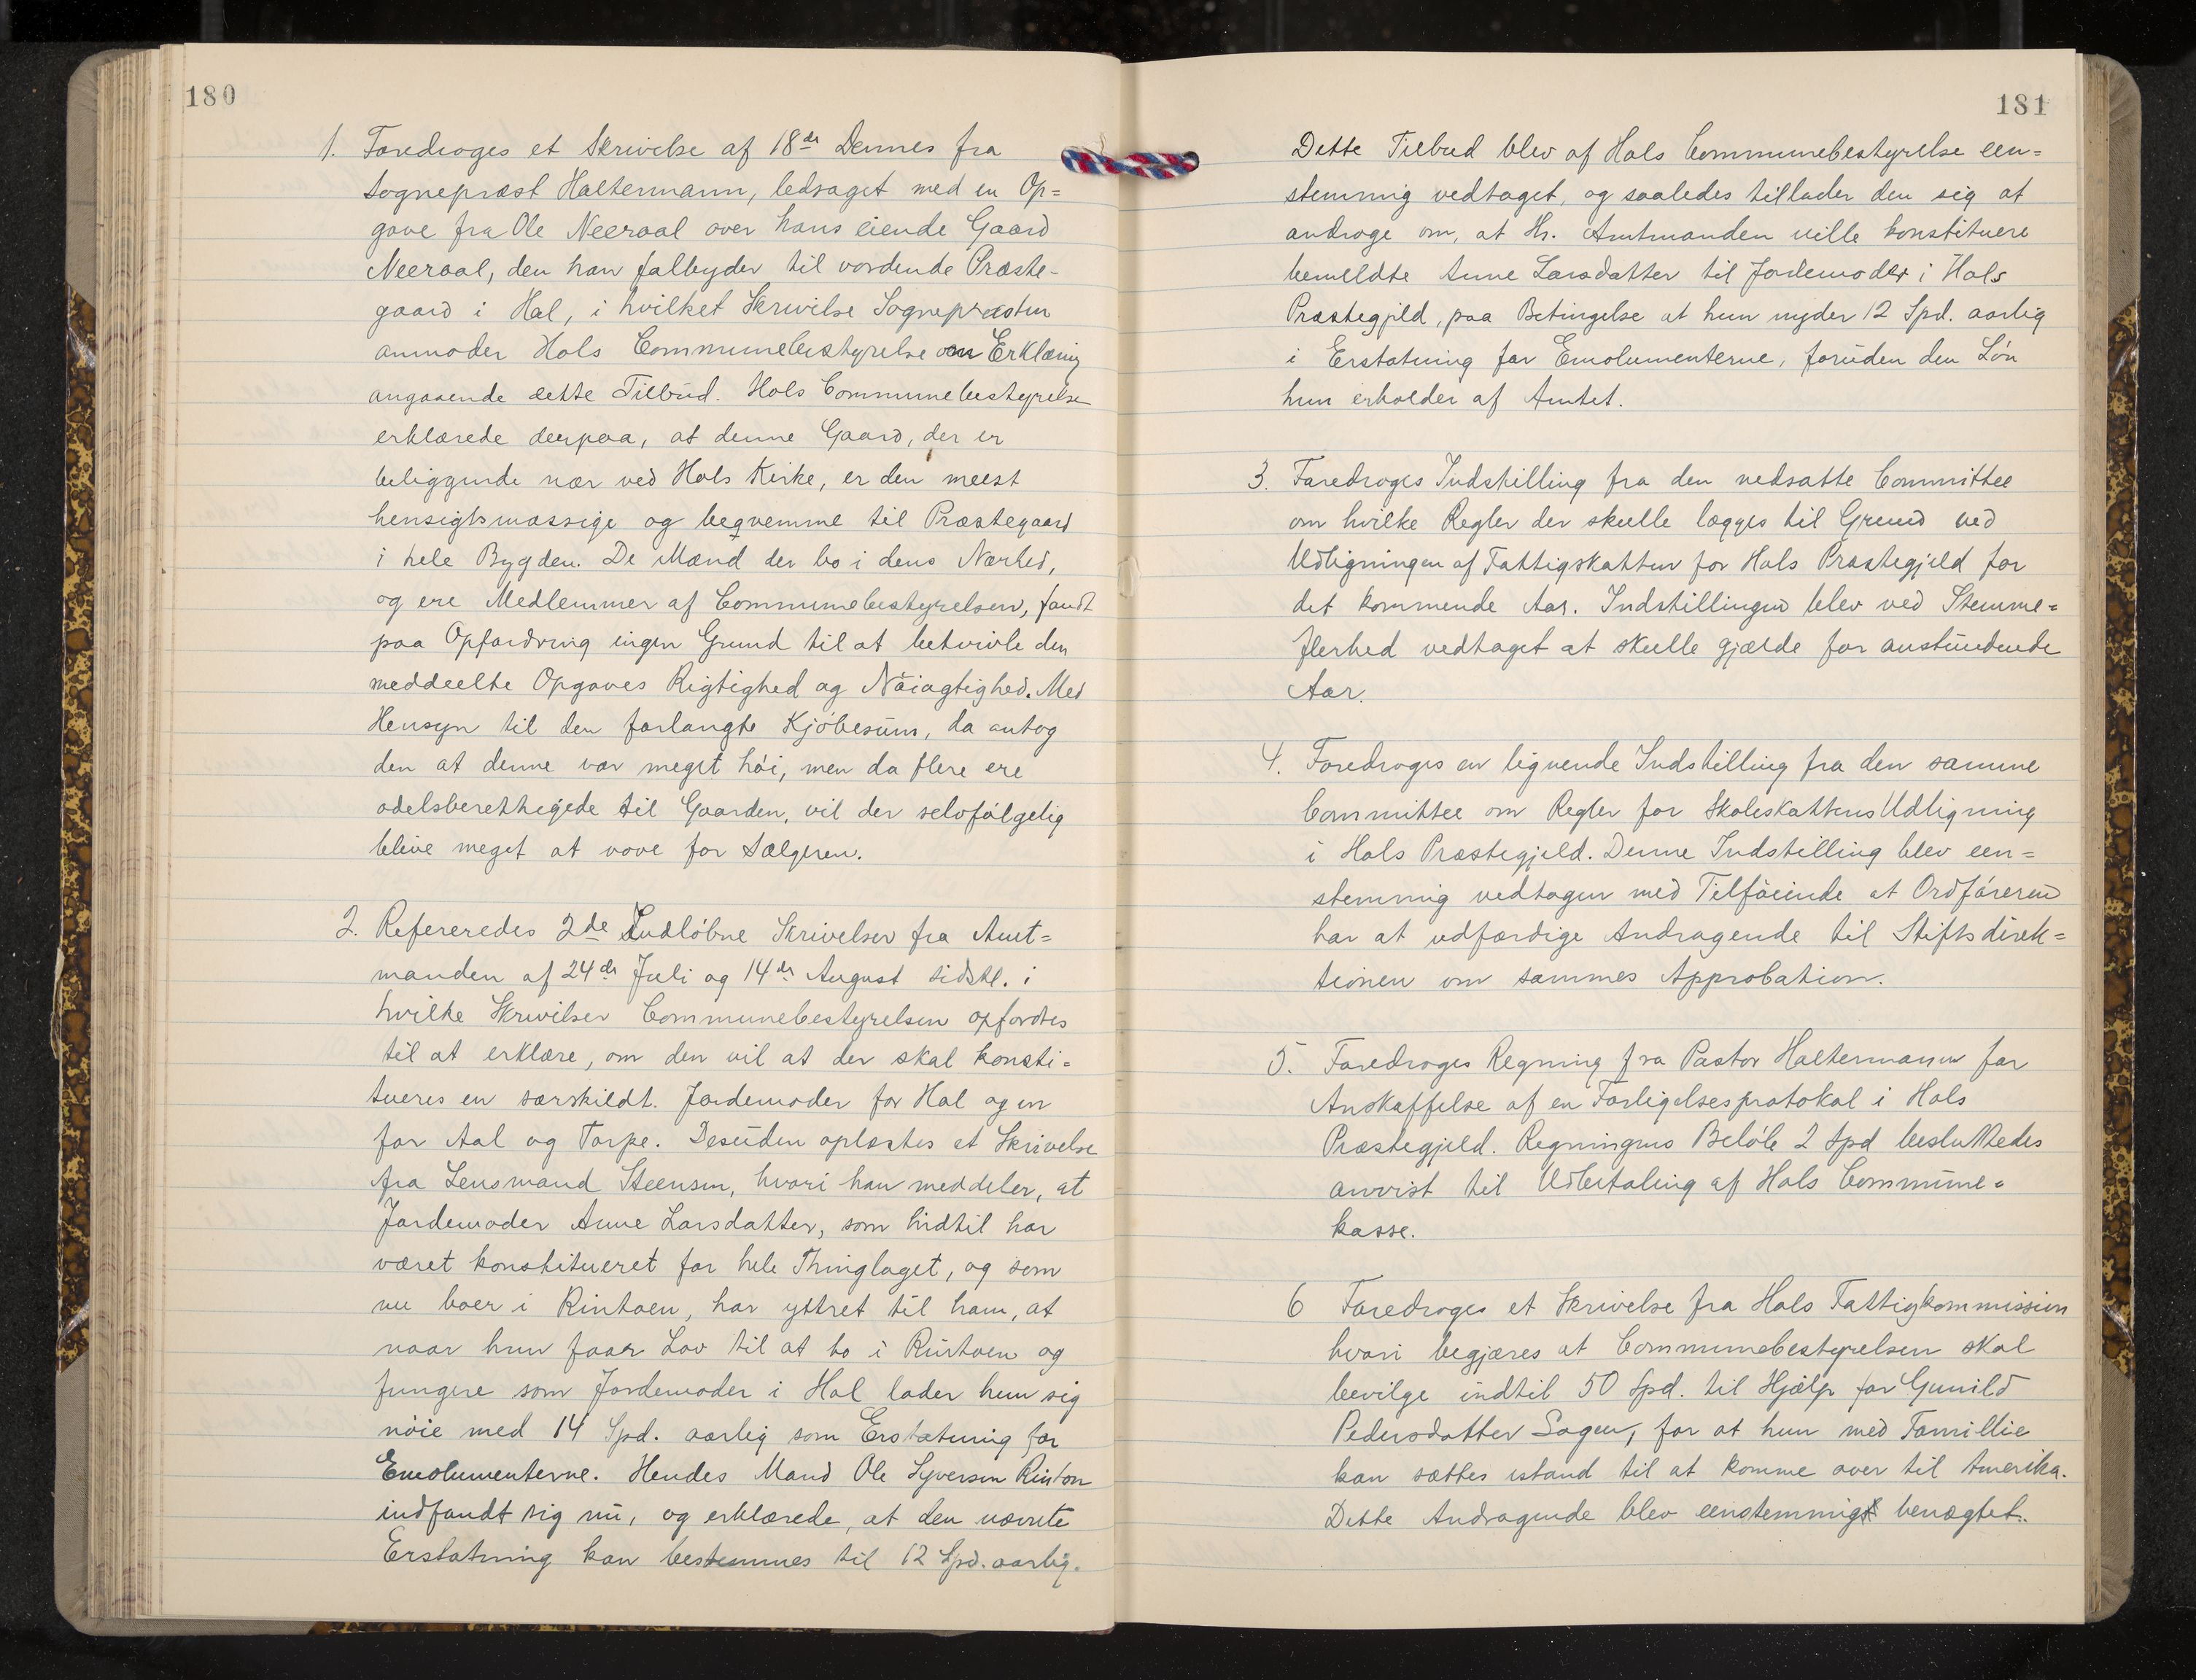 180
1. Foredroges et Skrivelse af 18de Dennes fra
Sognepræst Haltermann, ledsaget med en Op=
gave fra Ole Neeraal over hans eiende Gaard
Neeraal, den han falbyder til vordende Præste-
gaard i Hal, i hvilket Skrivelse Sognepræsten
anmoder Hols Communebestyrelse om Erklæring
angaaende dette Tilbud. Hols Communebestyrelse
erklærede derpaa, at denne Gaard, der er
beliggende nær ved Hols Kirke, er den meest
hensigtsmæssige og beqvemme til Præstegaard
i hele Bygden. De Mænd der bo i dens Nærhed,
og ere Medlemmer af Communebestyrelsen, fandt
paa Opfordring ingen Grund til at betvivle den
meddeelte Opgaves Rigtighed og Nöiagtighed. Med
Hensyn til den forlangte Kjöbesum, da antog
den at denne var meget höi, men da flere ere
odelsberettigede til Gaarden, vil der selvfölgelig
blive meget at vove for Sælgeren.
2. Refereredes 2de Indlöbne Skrivelser fra Amt=
manden af 24de Juli og 14de August sidstl. i
hvilke Skrivelser Communebestyrelsen opfordres
til at erklære, om den vil at der skal konsti=
tueres en særskildt Jordemoder for Hal og en
for Aal og Torpe. Desuden oplæstes et Skrivelse
fra Lensmand Steensen, hvori han meddeler, at
Jordemoder Anne Larsdatter, som hidtil har
været konstitueret for hele Thinglaget, og som
nu boer i Rintoen, har yttret til ham, at
naar hun faar Lov til at bo i Rintoen og
fungere som Jordemoder i Hol lader hun sig
nöie med 14 Spd. aarlig som Erstatning for
Emolumenterne. Hendes Mand Ole Syversen Rinton
indfandt sig nu, og erklærede, at den nævnte
Erstatning kan bestemmes til 12 Spd. aarlig.
181
Dette Tilbud blev af Hols Communebestyrelse een=
stemmig vedtaget, og saaledes tillader den sig at
andrage om, at Hr. Amtmanden ville konstituere
bemeldte Anne Larsdatter til Jordemoder i Hols
Præstegjeld, paa Betingelse at hun nyder 12 Spd. aarlig
i Erstatning for Emolumenterne, foruden den Lön
hun erholder af Amtet.
3. Foredroges Indstilling fra den nedsatte Committee
om hvilke Regler der skulle lægges til Grund ved
Udligningen af Fattigskatten for Hols Præstegjeld for
det kommende Aar. Indstillingen blev ved Stemme=
flerhed vedtaget at skulle gjælde for anstundende
Aar.
4. Foredroges en lignende Indstilling fra den samme
Committee om Regler for Skoleskattens Udligning
i Hols Præstegjeld. Denne Indstilling blev een=
stemmig vedtagen med Tilföiende at Ordföreren
har at udfærdige Andragende til Stiftsdirek=
tionen om sammes Approbation.
5. Foredroges Regning fra Pastor Haltermann for
Anskaffelse af en Forligelsesprotokol i Hols
Præstegjeld. Regningens Belöb 2 Spd besluttedes
anvist til Udbetaling af Hols Commune=
kasse.
6 Foredroges et Skrivelse fra Hols Fattigkommission
hvori begjæres at Communebestyrelsen skal
bevilge indtil 50 Spd. til Hjælp for Gunild
Pedersdatter Sagen, for at hun med Famillie
kan sættes istand til at komme over til Amerika.
Dette Andragende blev eenstemmigt benægtet.